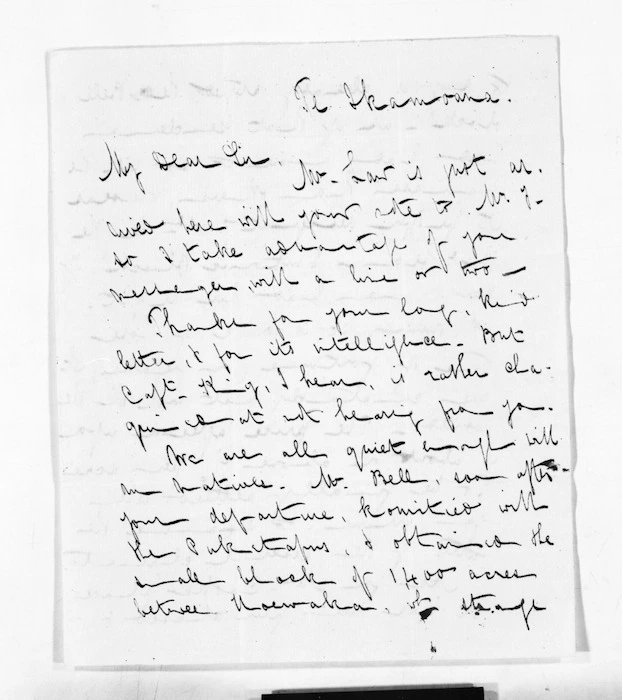 Te Ikamoana.
My Dear Sir
Mr. Law is just ar-
rived here with your note to Mr. J-
so I take advantage of your
messenger with a line or two -
Thanks for your long, kind
letter, & for its intelligence. But
Capt. King, I hear, is rather cha-
grined at not hearing from you.
We are all quiet enough with
our natives. Mr. Bell, soon after
your departure, komitied with
the Puketapus, & obtained the
small block of 1400 acres
between Hoewaka, strange